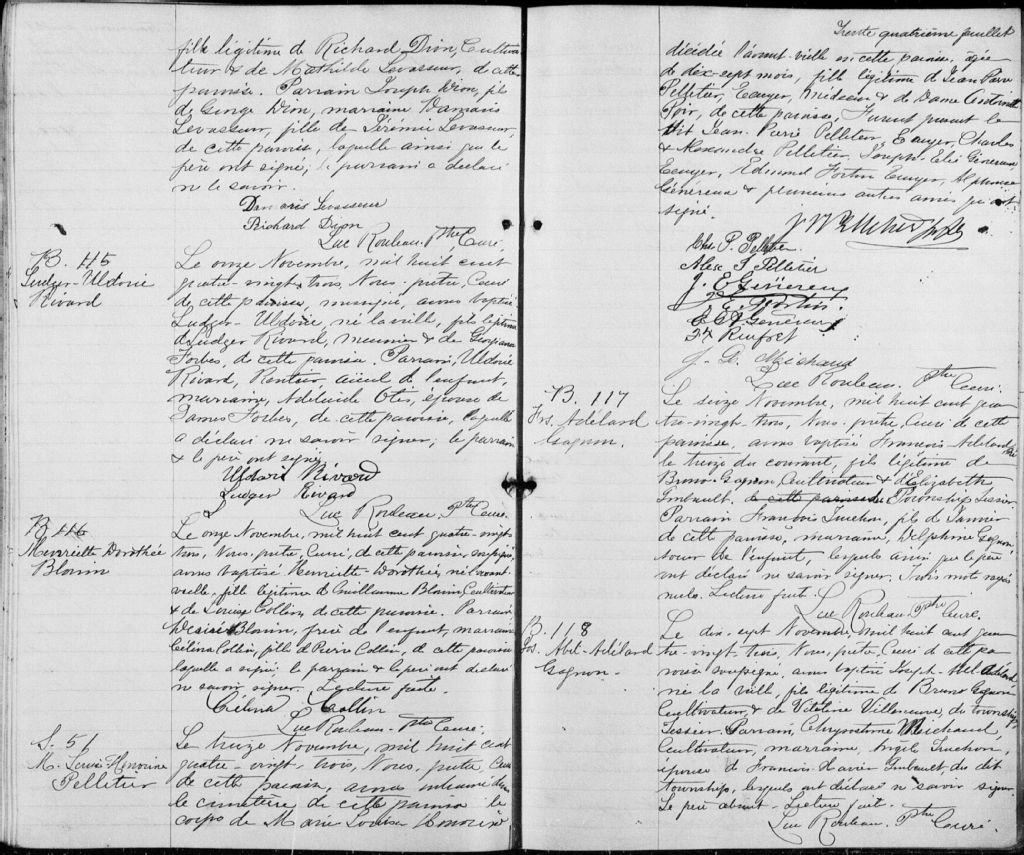 fille légitime de Richard Dion, Cultiva-
teur & de Mathilde Levasseur, de cette
paroisse. Parrain Joseph Dion, fils
de George Dion, marraine Damaris
Levasseur, fille de Jérémie Levasseur,
de cette paroisse, laquelle ainsi que le
père ont signé; le parrain a déclaré
ne le savoir.
Damaris Levasseur
Richard Dion
Luc Rouleau. Ptre Curé.
B. 115
Ludger-Uldoric
Rivard
Le onze Novembre, mil huit cent
quatre-vingt trois, Nous, prêtre, Curé
de cette paroisse, soussigné, avons baptisé
Ludger-Uldoric, né la veille, fils légitime
de Ludger Rivard, meunier & de Georgiana
Forbes, de cette paroisse. Parrain, Uldoric
Rivard, Rentier, aïeul de l'enfant,
marraine, Adelaïde Otis, épouse de
James Forbes, de cette paroisse, laquelle
a déclaré ne savoir signer; le parrain
& le père ont signé.
Uldoric Rivard
Ludger Rivard
Luc Rouleau, Ptre Curé.
B. 116
Henriette Dorothée
Blouin
Le onze Novembre, mil huit cent quatre-vingt-
trois, Nous, prêtre, Curé, de cette paroisse, soussigné
avons baptisé Henriette-Dorothée, née l'avant-
veille, fille légitime de Guillaume Blouin, Cultivateur
& de Louise Collin, de cette paroisse. Parrain
Désiré Blouin, frère de l'enfant, marraine
Célina Collin, fille de Pierre Collin, de cette paroisse
laquelle a signé; le parrain & le père ont déclaré
ne savoir signer. Lecture faite.
Célina Collin
Luc Rouleau. Ptre Curé.
S. 51
M. Louise-Honorine
Pelletier
Le treize Novembre, mil huit cent
quatre-vingt-trois, Nous, prêtre, Curé
de cette paroisse, avons inhumé dans
le cimetière de cette paroisse le
corps de Marie Louise Honorine
Trente quatrième feuillet
décédée l'avant-veille en cette paroisse, âgée
de dix-sept mois, fille légitime de Jean Pierre
Pelletier, Ecuyer, Médecin & de Dame
de cette paroisse, Furent présent le
dit Jean-Pierre Pelletier, Ecuyer, Charles
& Alexandre Pelletier, Joseph-Elie Généreux
Ecuyer, Edmund Fortin Ecuyer, Alphonse
Généreux & plusieurs autres amis qui ont
signé.
Chs P. Pelletier
Alex. S. Pelletier
J. E. Généreux
E. Fortin
Généreux
Rinfret
J. D. Michaud
Luc Rouleau. Ptre Curé.
B. 117
Frs. Adélard
Gagnon.
Le seize Novembre, mil huit cent qua-
tre-vingt-trois, Nous, prêtre, Curé de cette
paroisse, avons baptisé François Adélard né
le treize du courant, fils légitime de
Bruno Gagnon, Cultivateur & d'Elizabeth
Imbault, de cette paroisse du Township Tessier
Parrain François Truchon, fils de Janvier
de cette paroisse, marraine, Delphine Gagnon
soeur de l'enfant, lesquels ainsi que le père
ont déclaré ne savoir signer. Trois mots rayés
nuls. Lecture faite.
Luc Rouleau. Ptre Curé.
B. 118
Jos. Abel-Adélard
Gagnon.
Le dix-sept Novembre, mil huit cent qua-
tre-vingt-trois, Nous, prêtre, Curé de cette pa-
roisse soussigné, avons baptisé Joseph-Abel Adélard
né la veille, fils légitime de Bruno Gagnon
Cultivateur, & de Vitaline Villeneuve, du township
Tessier. Parrain, Chrysostome Michaud,
Cultivateur, marraine, Angèle Truchon,
épouse de François-Xavier Imbault, du dit
township, lesquels ont déclaré ne savoir signer.
Le père absent. Lecture faite.
Luc Rouleau. Ptre Curé.